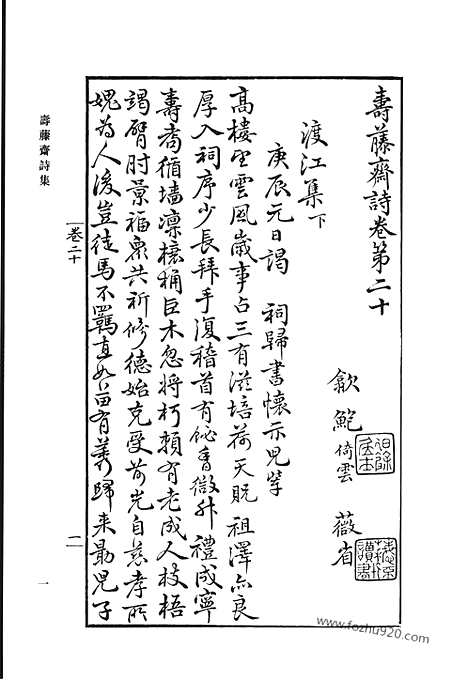 壽藤齋詩卷第二十
歙 鮑倚雲 薇省
渡江集下
庚辰元日謁 祠歸書懷示兒輩
高樓望雲風歲事占三有滋培荷天貺 祖澤亦良
厚入祠序少長拜手復稽首有飶香徹升禮成寧
壽耇循墙凜榱桷巨木忽將朽賴有老成人枝梧
竭臂肘景福衆共祈修德始克受前光自慈孝所
媿為人後豈徒馬不羈直如苗有莠歸来勗兒子
卷二十
一
壽藤齋詩集
一
www.fozhu920.com